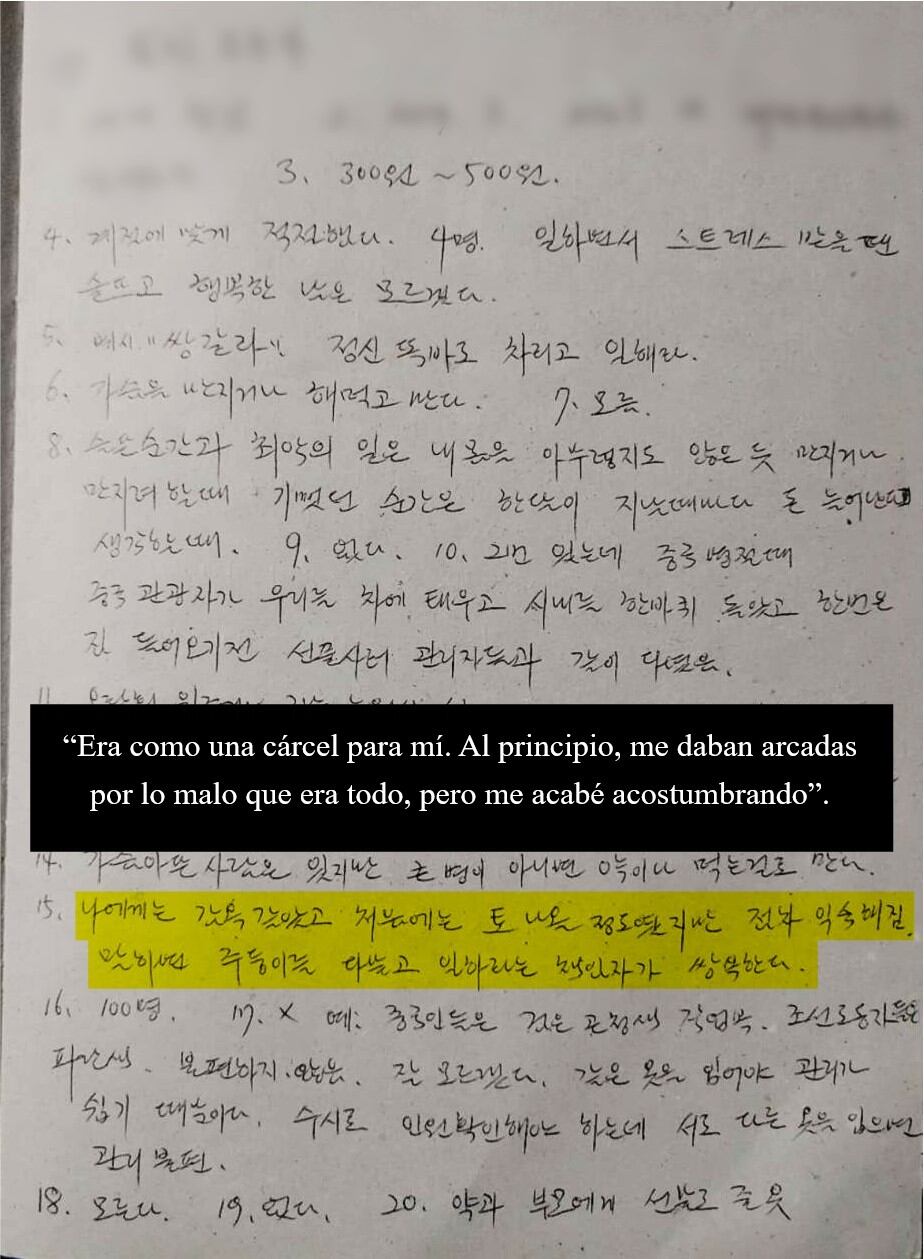 3. 300원 ~ 500원.
4. 계절에 맞게 적절했다. 4명. 일하면서 스트레스 받을 땐
슬프고 행복한 날은 모르겠다.
5. 멘시 "쌍갈라" 정신 똑바로 차리고 일해라.
6. 가슴을 만지거나 해먹고 만다. 7. 모름.
8. 슬픈순간과 최악의 일은 내 몸을 아무렇지도 않은 듯 만지거나
만지려 할때 기뻤던 순간은 한달이 지날때마다 돈 늘어난다
생각하는때. 9. 없다. 10. 2번 있는데 중국 명절때
중국 관광자가 우리를 차에 태우고 시내를 한바퀴 돌았고 한번은
집 들어오기전 선물사러 관리자들과 같이 다녔음.
11.
“Era como una cárcel para mí. Al principio, me daban arcadas
por lo malo que era todo, pero me acabé acostumbrando”.
14. 가슴아픈 사람은 있지만 큰 병이 아니면 약이나 먹는걸로 만다.
15. 나에게는 감옥 같았고 처음에는 토 나올 정도였지만 점차 익숙해짐.
말하면 주둥이를 다물고 일하라는 책임자가 쌍욕한다.
16. 100명. 17. X 예: 중국인들은 검은 곤청색 작업복. 조선로동자들은
파란색. 불편하지 않음. 잘 모르겠다. 같은 옷을 입어야 관리가
쉽기 때문이다. 수시로 인원확인해야 하는데 서로 다른 옷을 입으면
관리 불편.
18. 모른다. 19. 없다. 20. 약과 부모에게 선물로 줄 옷